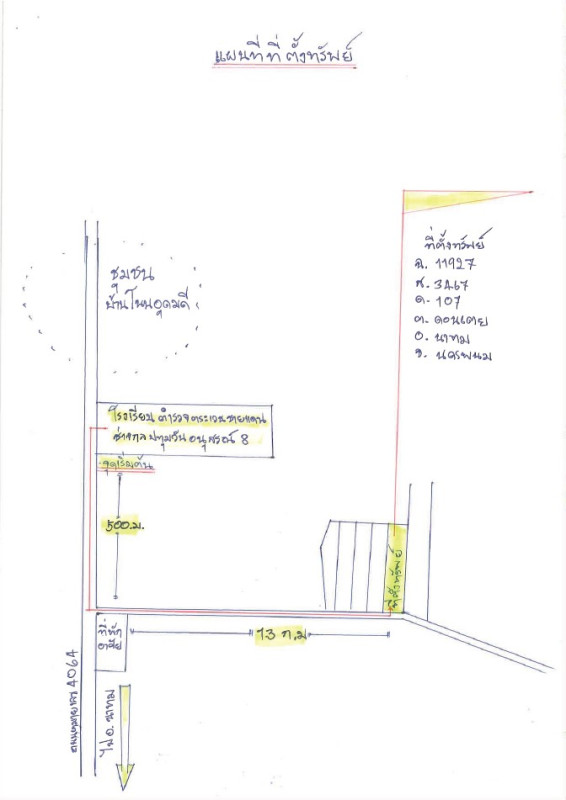 แผนที่ที่ตั้งทรัพย์
ที่ตั้งทรัพย์
ฉ. 11927
ส. 3467
ด. 107
ต. ดอนเตย
อ. นาทม
จ. นครพนม
ชุมชน
บ้านโนนอุดมดี
โรงเรียน ตำรวจตระเวนชายแดน
ช่างกลปทุมวัน อนุสรณ์ 8
จุดเริ่มต้น
500 ม.
ที่ตั้งทรัพย์
13 ก.ม
ที่พัก
ถนนหมายเลข 4064
ไป อ. นาทม